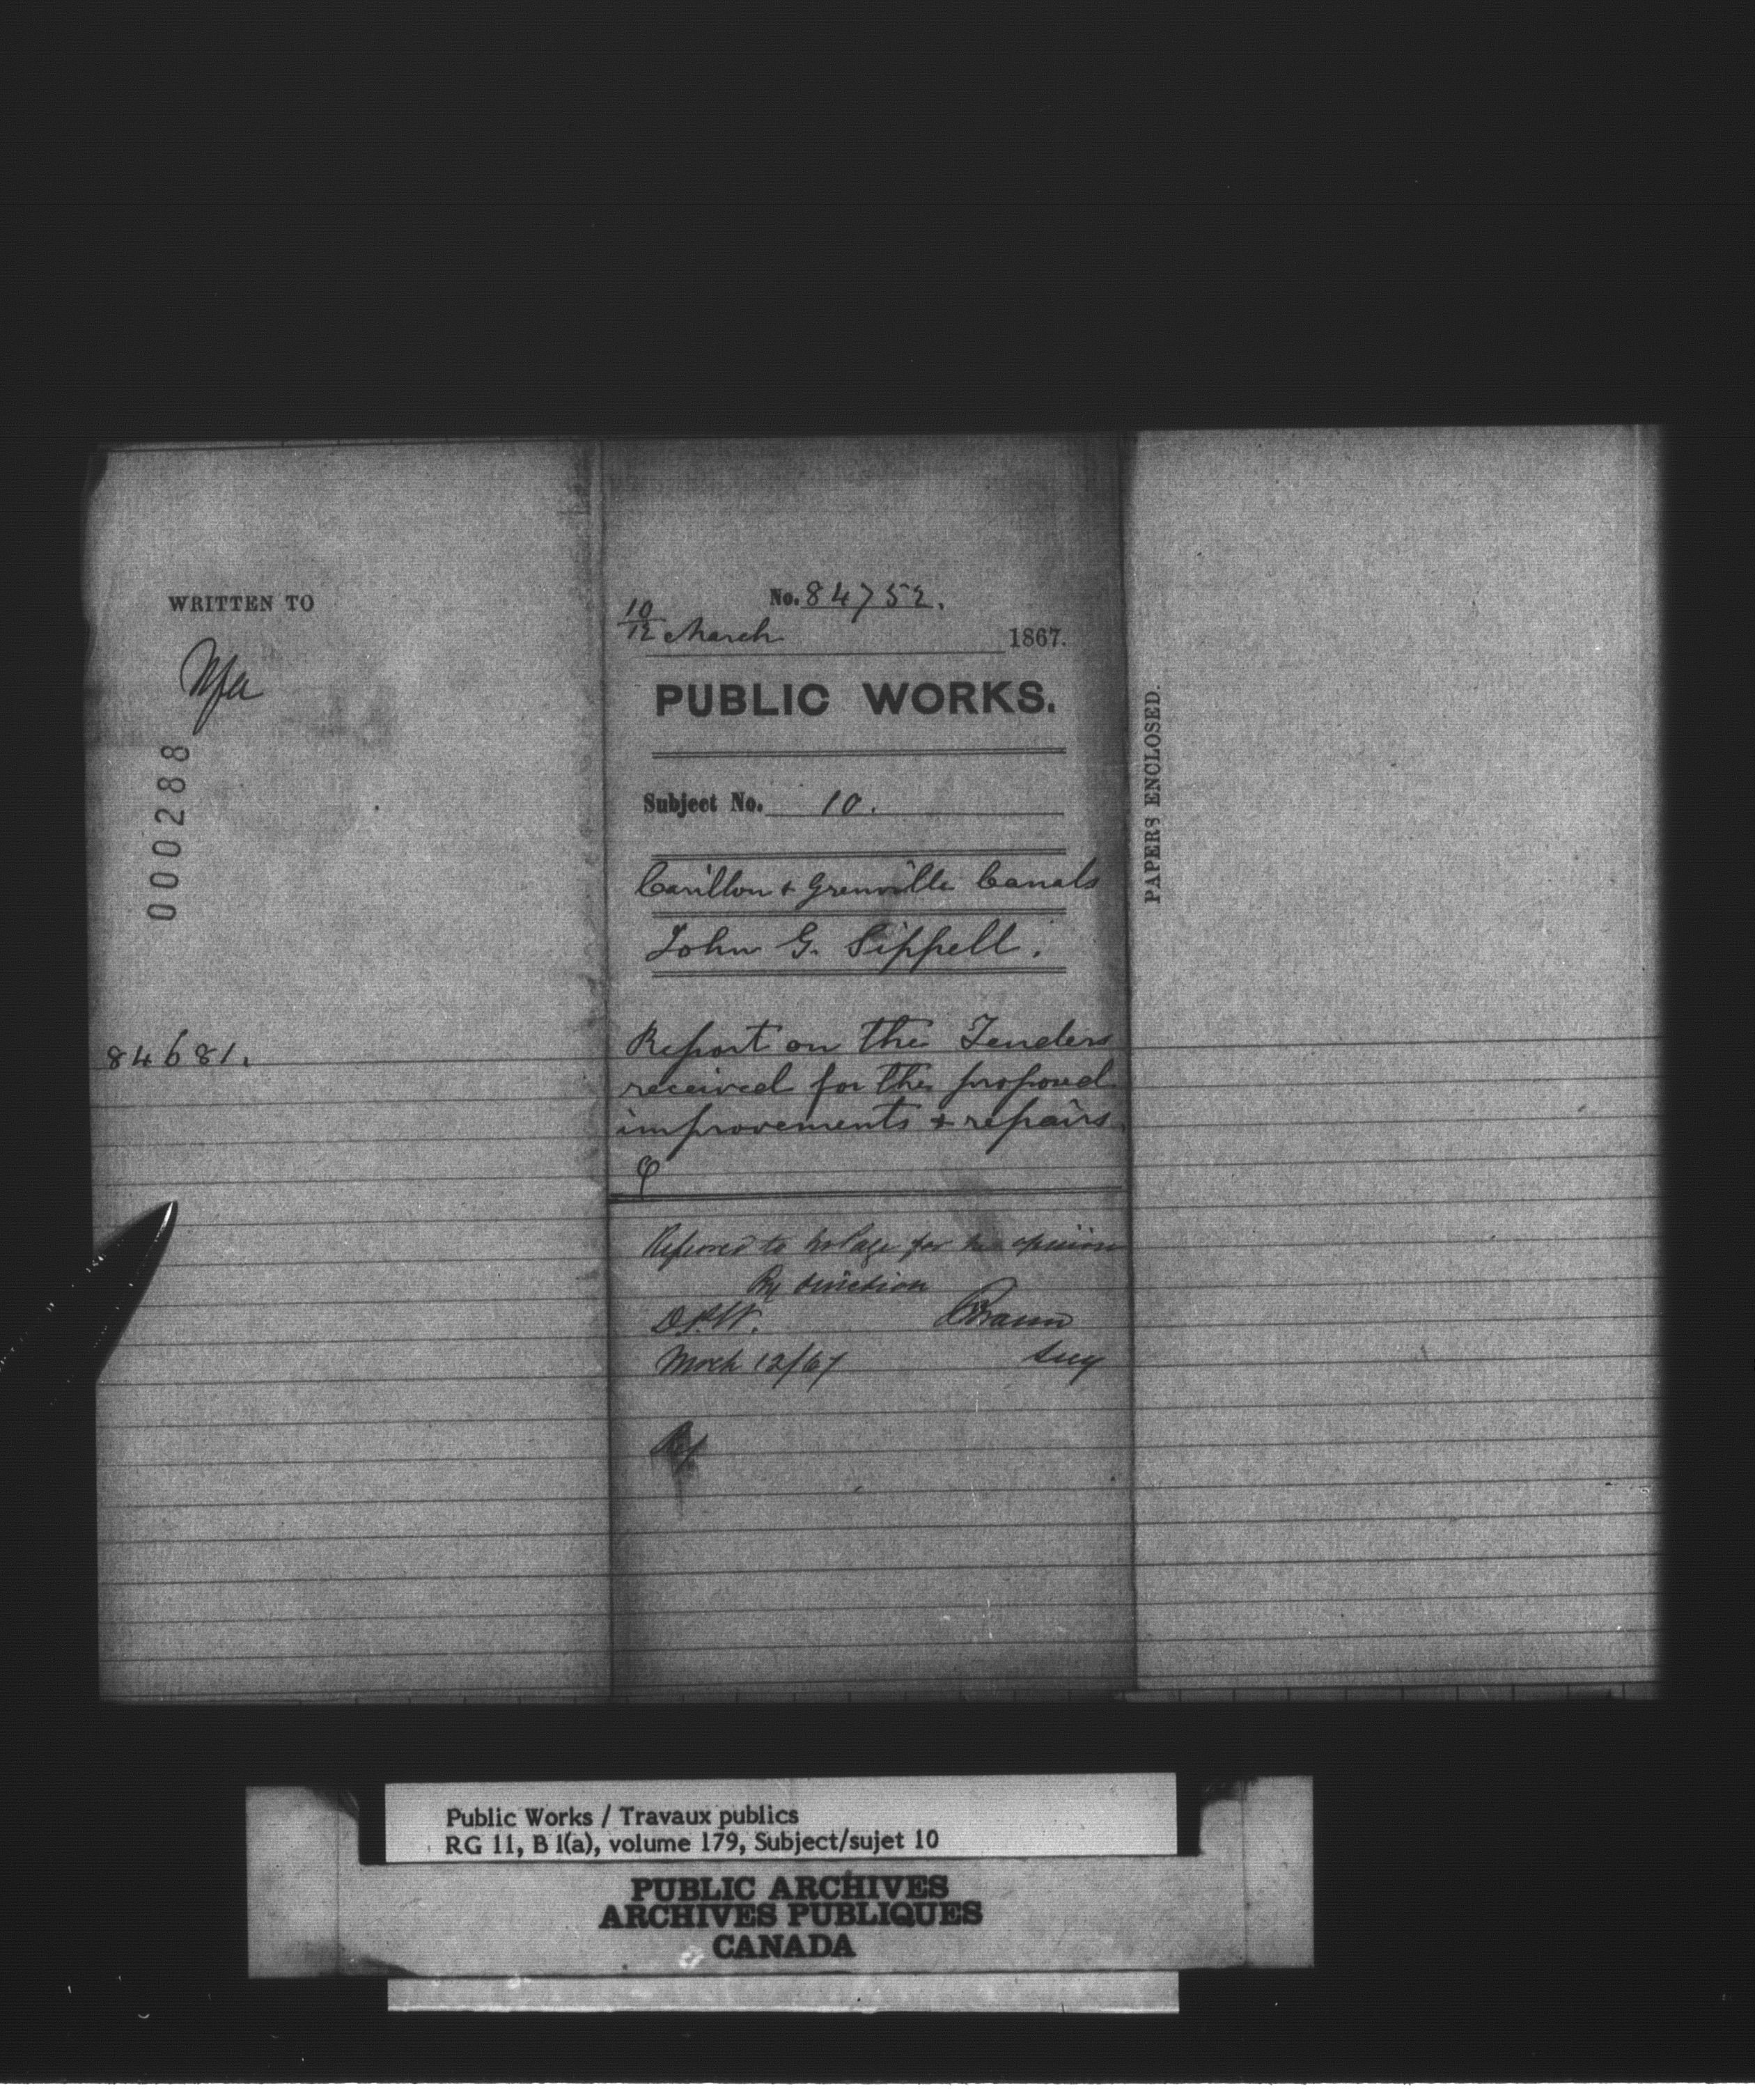 WRITTEN TO
000288
84681.
No. 84752.
10/12 March 1867.
PUBLIC WORKS.
Subject No. 10.
Carillon & Grenville Canals
John G. Sippell.
Report on the Tenders
received for the proposed
improvements & repairs.
Referred to for his opinion
By direction
D.P.W. Braun
March 12/67 Secy
PAPERS ENCLOSED.
Public Works / Travaux publics
RG 11, B 1(a), volume 179, Subject/sujet 10
PUBLIC ARCHIVES
ARCHIVES PUBLIQUES
CANADA